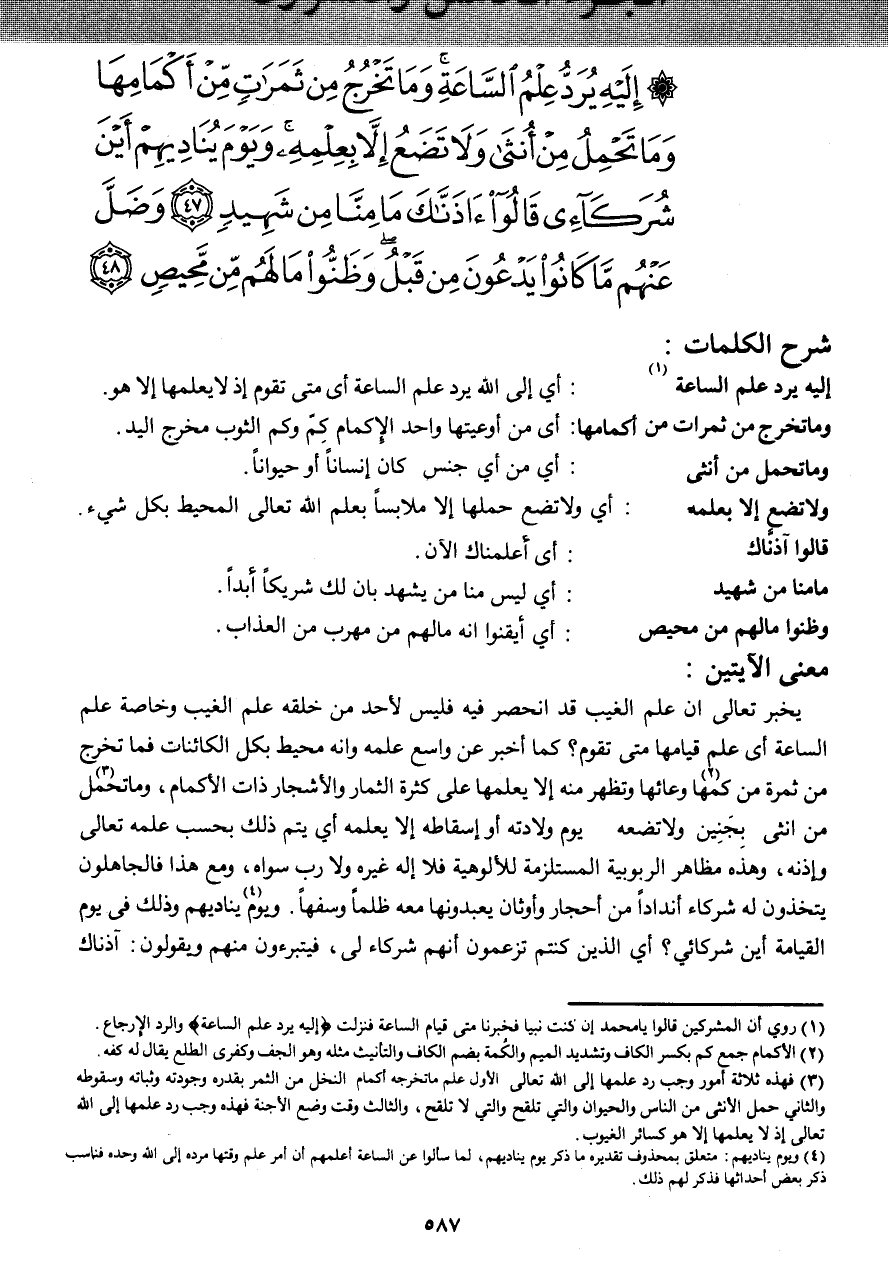 ۞ إِلَيْهِ يُرَدُّ عِلْمُ ٱلسَّاعَةِ ۚ وَمَا تَخْرُجُ مِن ثَمَرَٰتٍ مِّنْ أَكْمَامِهَا
وَمَا تَحْمِلُ مِنْ أُنثَىٰ وَلَا تَضَعُ إِلَّا بِعِلْمِهِۦ ۚ وَيَوْمَ يُنَادِيهِمْ أَيْنَ
شُرَكَآءِى قَالُوٓا۟ ءَاذَنَّـٰكَ مَا مِنَّا مِن شَهِيدٍ ﴿٤٧﴾ وَضَلَّ
عَنْهُم مَّا كَانُوا۟ يَدْعُونَ مِن قَبْلُ ۖ وَظَنُّوا۟ مَا لَهُم مِّن مَّحِيصٍ ﴿٤٨﴾
شرح الكلمات :
إليه يرد علم الساعة (١) : أي إلى الله يرد علم الساعة أى متى تقوم إذ لايعلمها إلا هو.
وماتخرج من ثمرات من أكمامها: أى من أوعيتها واحد الإكمام كِمّ وكم الثوب مخرج اليد.
وماتحمل من أنثى : أي من أي جنس كان إنساناً أو حيواناً.
ولاتضع إلا بعلمه : أي ولاتضع حملها إلا ملابساً بعلم الله تعالى المحيط بكل شيء.
قالوا آذنَّاك : أى أعلمناك الآن.
مامنا من شهيد : أي ليس منا من يشهد بان لك شريكاً أبداً.
وظنوا مالهم من محيص : أي أيقنوا انه مالهم من مهرب من العذاب.
معنى الآيتين :
يخبر تعالى ان علم الغيب قد انحصر فيه فليس لأحد من خلقه علم الغيب وخاصة علم
الساعة أى علم قيامها متى تقوم؟ كما أخبر عن واسع علمه وانه محيط بكل الكائنات فما تخرج
من ثمرة من كمها(٢) وعائها وتظهر منه إلا يعلمها على كثرة الثمار والأشجار ذات الأكمام، وماتحمل(٣)
من انثى بِجَنِين ولاتضعه يوم ولادته أو إسقاطه إلا يعلمه أي يتم ذلك بحسب علمه تعالى
وإذنه، وهذه مظاهر الربوبية المستلزمة للألوهية فلا إله غيره ولا رب سواه، ومع هذا فالجاهلون
يتخذون له شركاء أنداداً من أحجار وأوثان يعبدونها معه ظلماً وسفهاً. ويوم(٤) يناديهم وذلك فى يوم
القيامة أين شركائي؟ أي الذين كنتم تزعمون أنهم شركاء لى، فيتبرءون منهم ويقولون: آذناك
(١) روي أن المشركين قالوا يامحمد إن كنت نبيا فخبرنا متى قيام الساعة فنزلت ﴿إليه يرد علم الساعة﴾ والرد الإرجاع.
(٢) الأكمام جمع كم بكسر الكاف وتشديد الميم والكُمة بضم الكاف والتأنيث مثله وهو الجف وكفرى الطلع يقال له كفه.
(٣) فهذه ثلاثة أمور وجب رد علمها إلى الله تعالى الأول علم ماتخرجه أكمام النخل من الثمر بقدره وجودته وثباته وسقوطه
والثاني حمل الأنثى من الناس والحيوان والتي تلقح والتي لا تلقح، والثالث وقت وضع الأجنة فهذه وجب رد علمها إلى الله
تعالى إذ لا يعلمها إلا هو كسائر الغيوب.
(٤) ويوم يناديهم: متعلق بمحذوف تقديره ما ذكر يوم يناديهم، لما سألوا عن الساعة أعلمهم أن أمر علم وقتها مرده إلى الله وحده فناسب
ذكر بعض أحداثها فذكر لهم ذلك.
٥٨٧